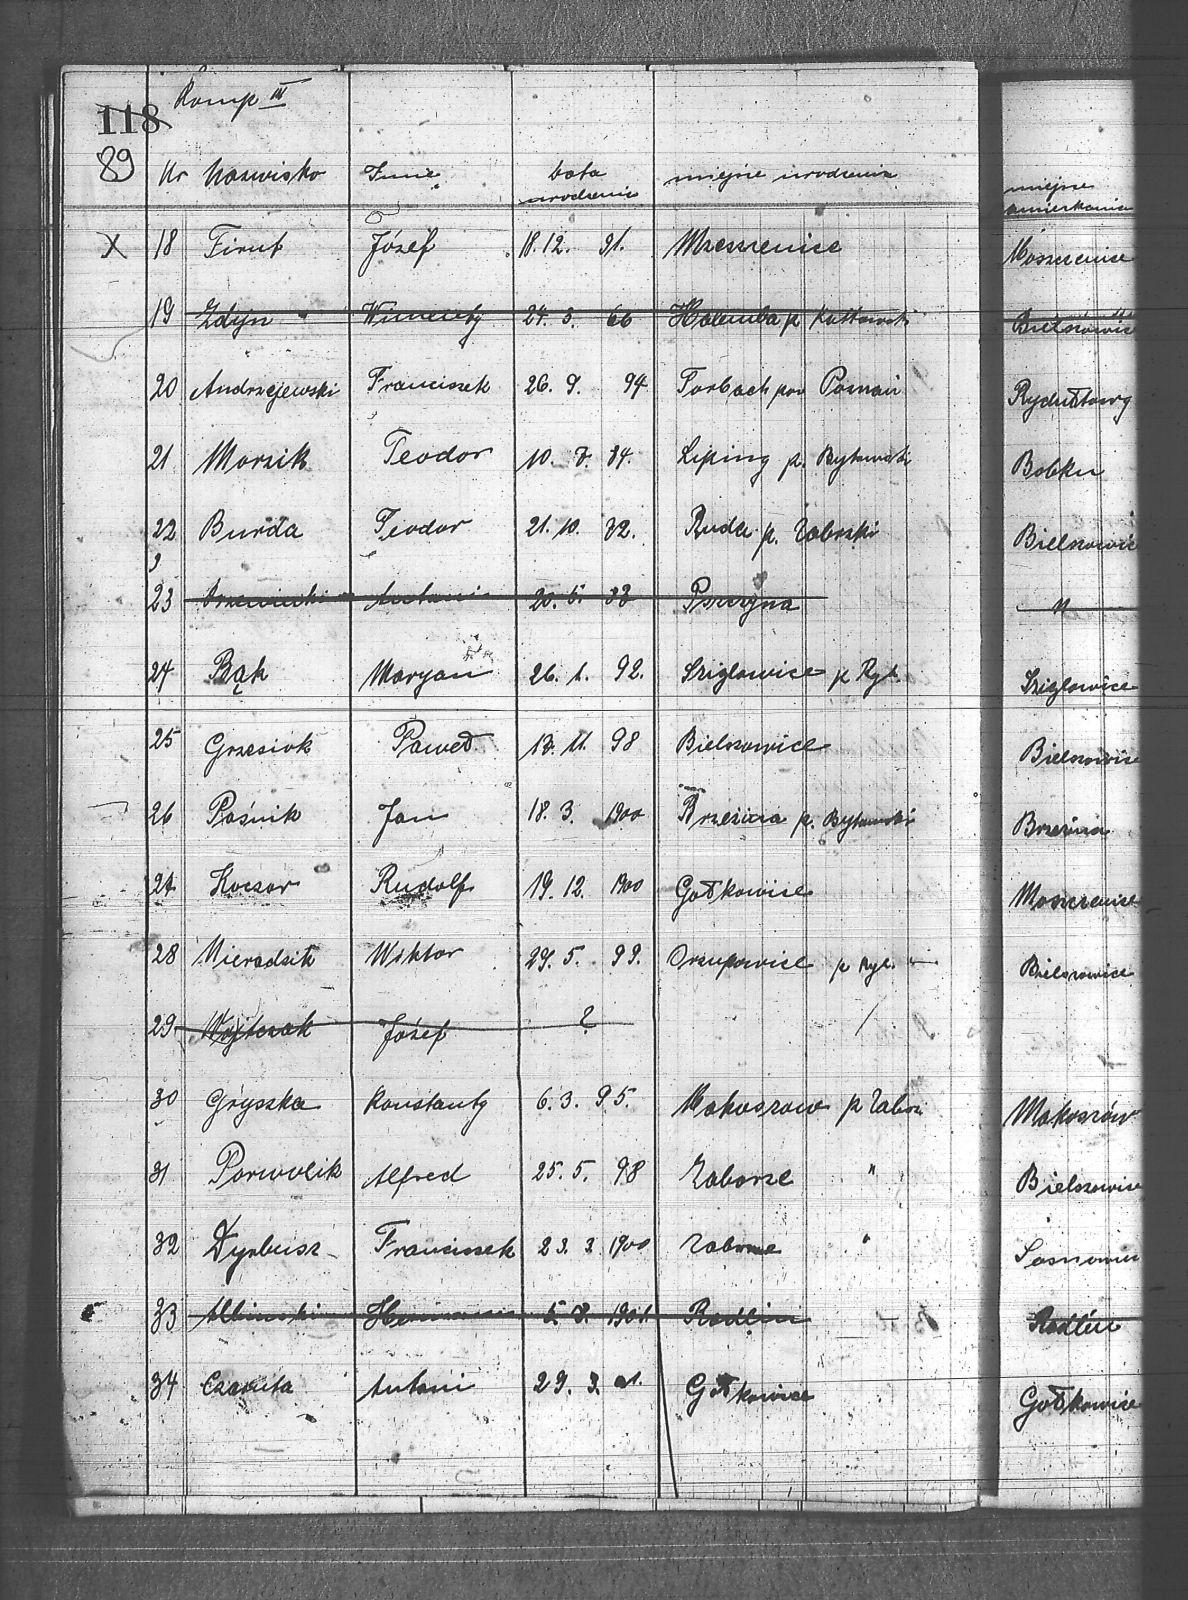 118 Komp III
89 Nr Nazwisko Imie data urodzenia miejsce urodzenia miejsce zamieszkania
X 18 Firut Józef 18. 12. 91. Mszeszenice Moszczenice
19 Zdyn Wincenty 24. 3. 66 Halemba p. Bielszowice
20 Andrzejewski Franciszek 26. 9. 94. Forbach pow Poznań Rydułtowy
21 Morzik Teodor 10. 7. 84. p. Bytomski Bobku
22 Burda Teodor 21. 10. 82. Ruda p. Zabrski Bielszowice
23 Antoni 20. 5. 83 Pszczyna "
24 Bąk Maryan 26. 1. 92. Sziglowice p Ryb. Sziglowice
25 Grzesiok Paweł 13. 11. 98 Bielszowice Bielszowice
26 Pośnik Jan 18. 3. 1900 Brzezina p. Bytomski Brzezina
27 Koczor Rudolf 19. 12. 1900 Gołkowice Moszczenice
28 Nieradzik Wiktor 29. 5. 99. Orzupowice p Ryb. Bielszowice
29 Wojtczak Józef ? /
30 Gryszka Konstanty 6. 3. 95. Makoszow p Zabrz Makoszów
31 Porwolik Alfred 25. 5. 98 Zaborze " Bielszowice
32 Dyrbusz Franciszek 23. 3 1900 Zaborze " Sosnowiec
33 Albinski 5. 8. 1901. Radlin Radlin
34 Czavita Antoni 29. 3. 01. Gołkowice Gołkowice